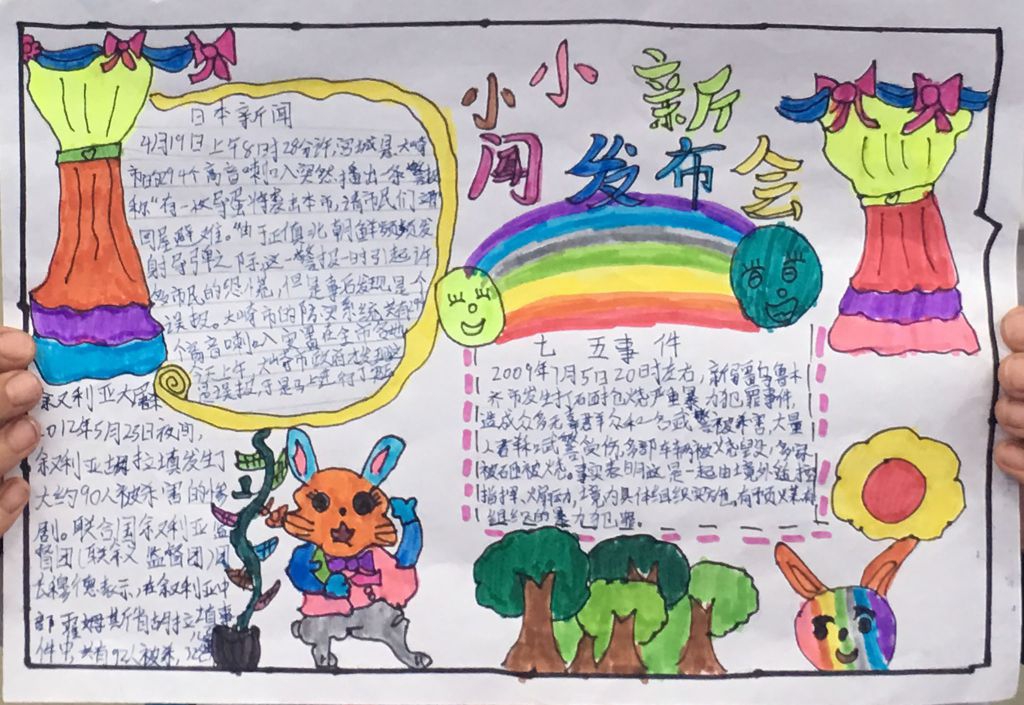 小小新
闻发布会
日本新闻
4月19日上午8时28分许,宫城县大崎
市的294个高音喇叭突然播出一条警报
称“有一枚导弹将袭击本市,请市民们
回屋避难。”由于正值北朝鲜频频发
射导弹之际,这一警报一时引起许
多市民的恐慌,但是事后发现是个
误报。大崎市的防灾系统共有
个高音喇叭安置在全市各地
上午,大崎市政府才
误报,于是马上进行了
七五事件
2009年7月5日20时左右,新疆乌鲁木
齐市发生打砸抢烧严重暴力犯罪事件,
造成众多无辜群众和一名武警被杀害,大量
人名群众武警受伤,多部车辆被烧毁,多家
被砸被烧。事实表明这是一起由境外遥控
指挥、煽动,境内具体组织实施,有预谋有
组织的暴力犯罪。
叙利亚大屠杀
2012年5月25日夜间,
叙利亚胡拉镇发生了
大约90人被杀害的惨
剧。联合国叙利亚监
督团(联叙监督团)团
长穆德表示,在叙利亚中
部霍姆斯省胡拉镇事
件中,共有92人被杀,